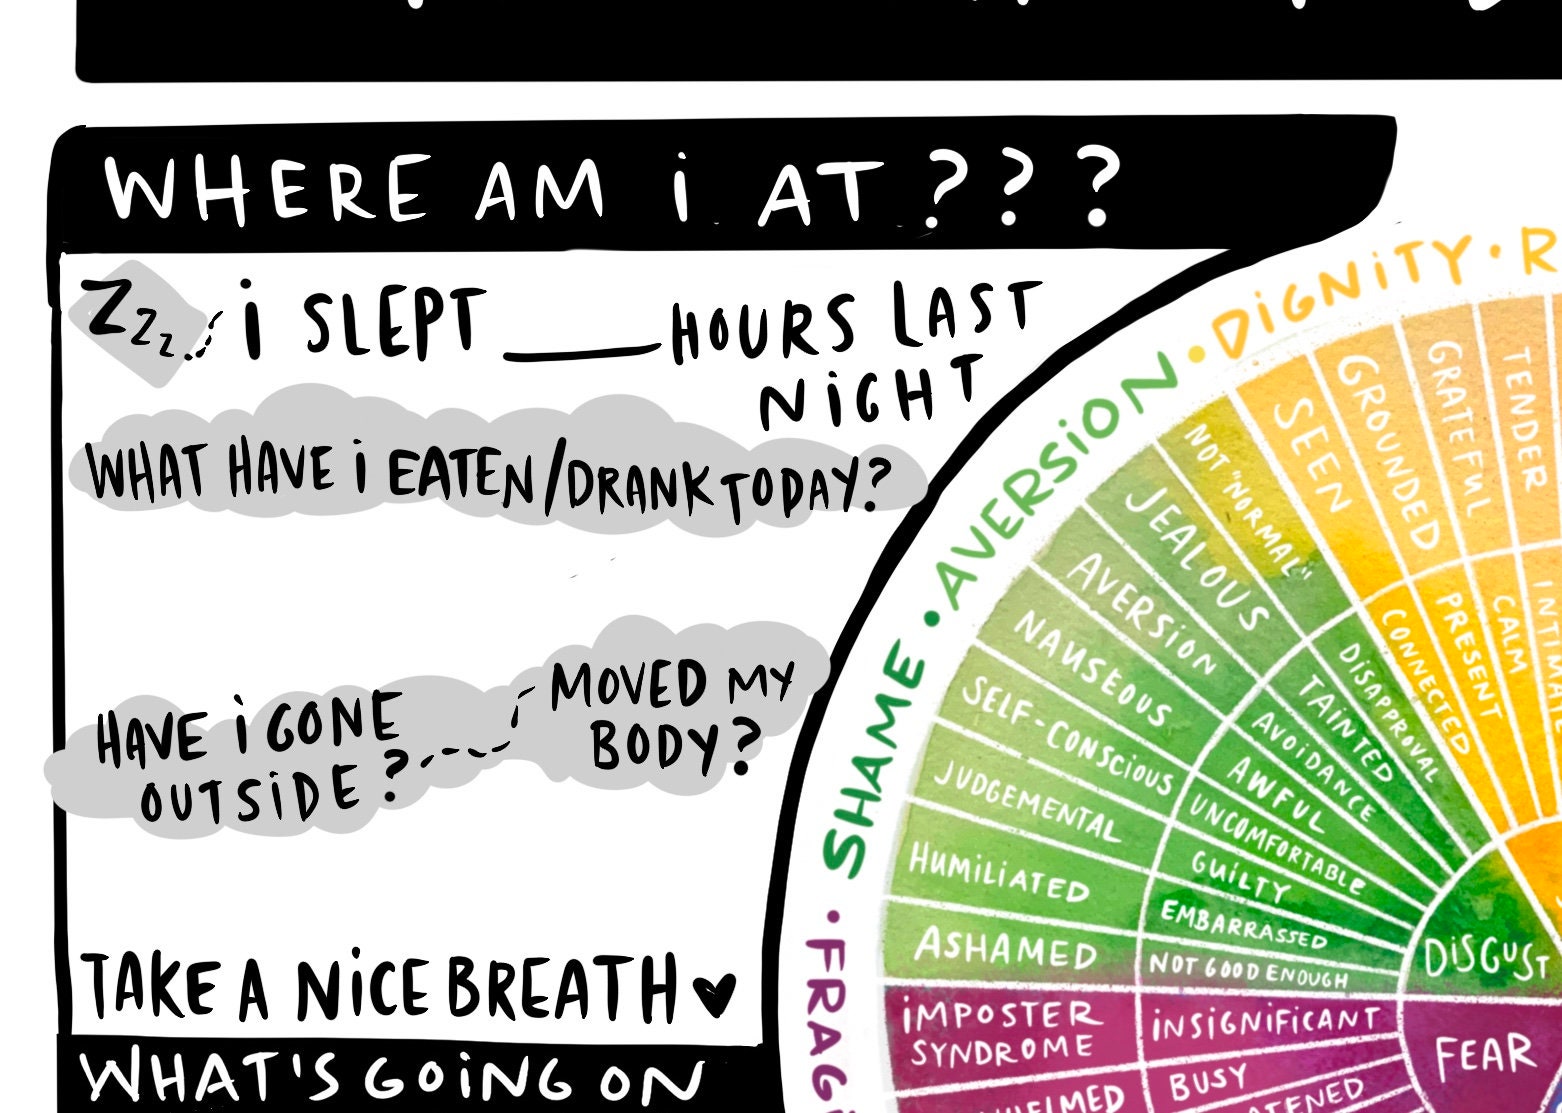 WHERE AM i AT ???
Zzz
i SLEPT ____ HOURS LAST
NiGHT
WHAT HAVE i EATEN/DRANK TODAY?
HAVE i GONE
OUTSiDE?
MOVED MY
BODY?
TAKE A NiCE BREATH ♥
WHAT'S GOiNG ON
SHAME • AVERSiON • DiGNiTY •
SEEN
GROUNDED
GRATEFUL
TENDER
CONNECTED
PRESENT
CALM
NOT "NORMAL"
JEALOUS
AVERSiON
NAUSEOUS
SELF-CONSCiOUS
JUDGEMENTAL
HUMiLiATED
ASHAMED
DiSAPPROVAL
TAiNTED
AVOiDANCE
AWFUL
UNCOMFORTABLE
GUiLTY
EMBARRASSED
NOT GOOD ENOUGH
DiSGUST
iMPOSTER
SYNDROME
iNSiGNiFiCANT
BUSY
FEAR